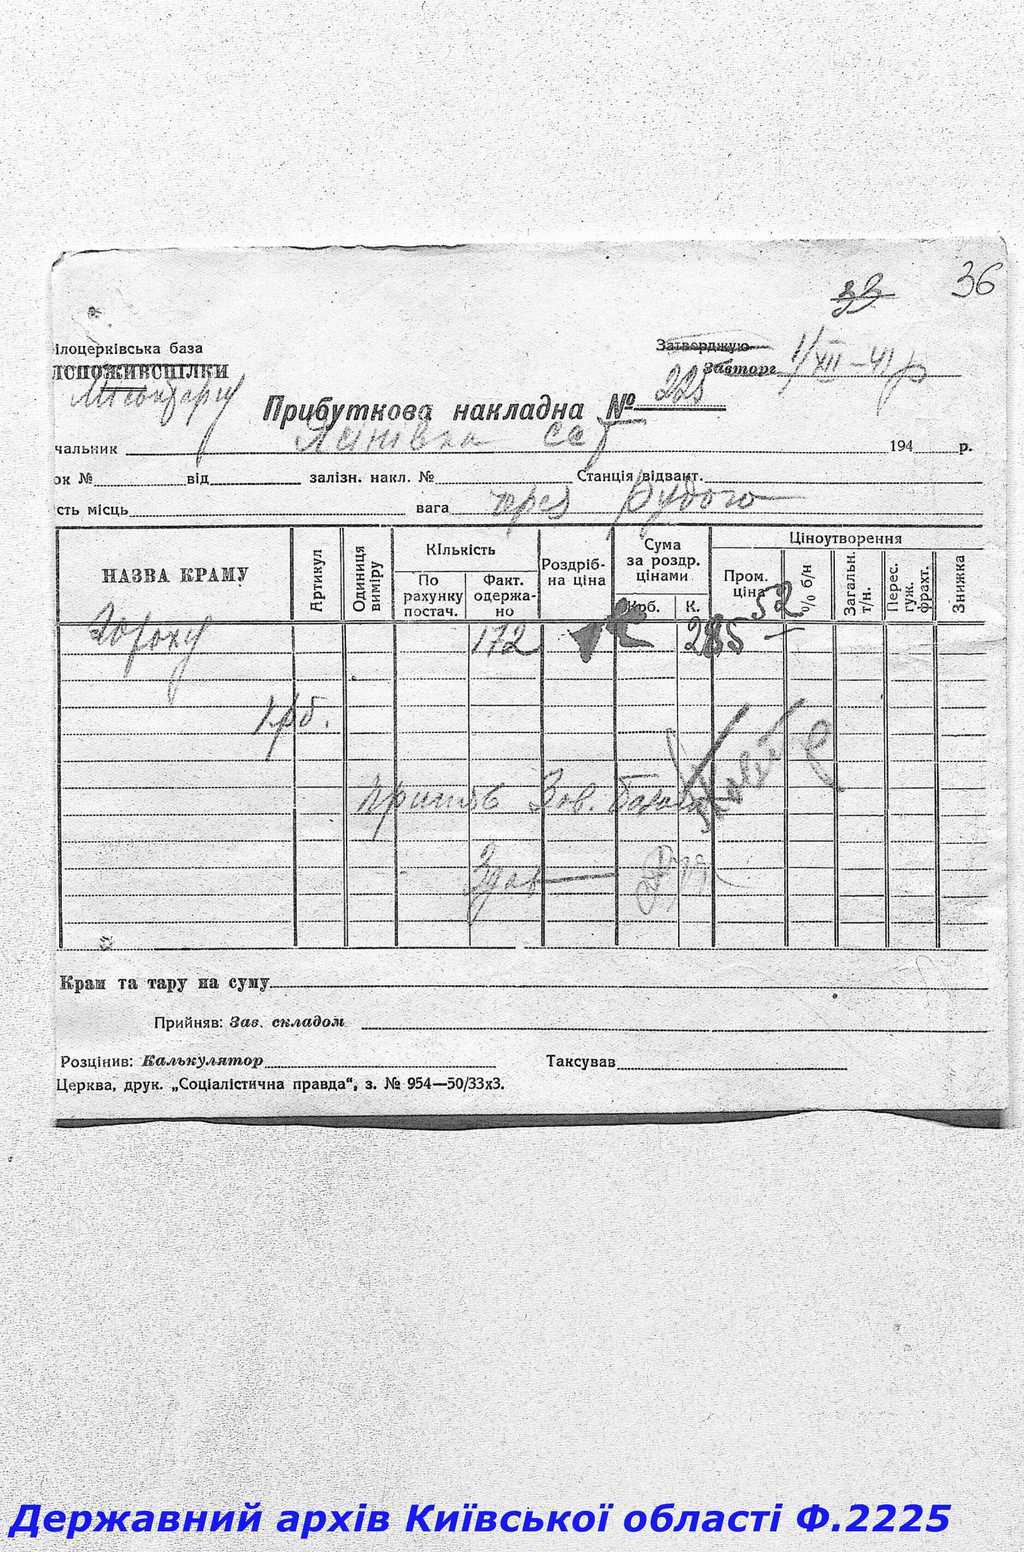 32 36
ілоцерківська база
Затверджую
ЛСПОЖИВСПІЛКИ
Завторг 1/XII-41 р
Прибуткова накладна № 225
чальник 194 р.
ок № від залізн. накл. № Станція відвант.
сть місць вага през Рудого
НАЗВА КРАМУ
Артикул
Одиниця виміру
Кількість
По рахунку постач.
Факт. одержа-но
Роздріб-на ціна
Сума за роздр. цінами
Крб. К.
Ціноутворення
Пром. ціна
% б/н
Загальн. т/н.
Перес. гуж. фрахт.
Знижка
52
Гороху 172 285
Прийняв Зав.
Здав
Крам та тару на суму
Прийняв: Зав. складом
Розцінив: Калькулятор Таксував
Церква, друк. „Соціалістична правда“, з. № 954—50/33х3.
Державний архів Київської області Ф.2225